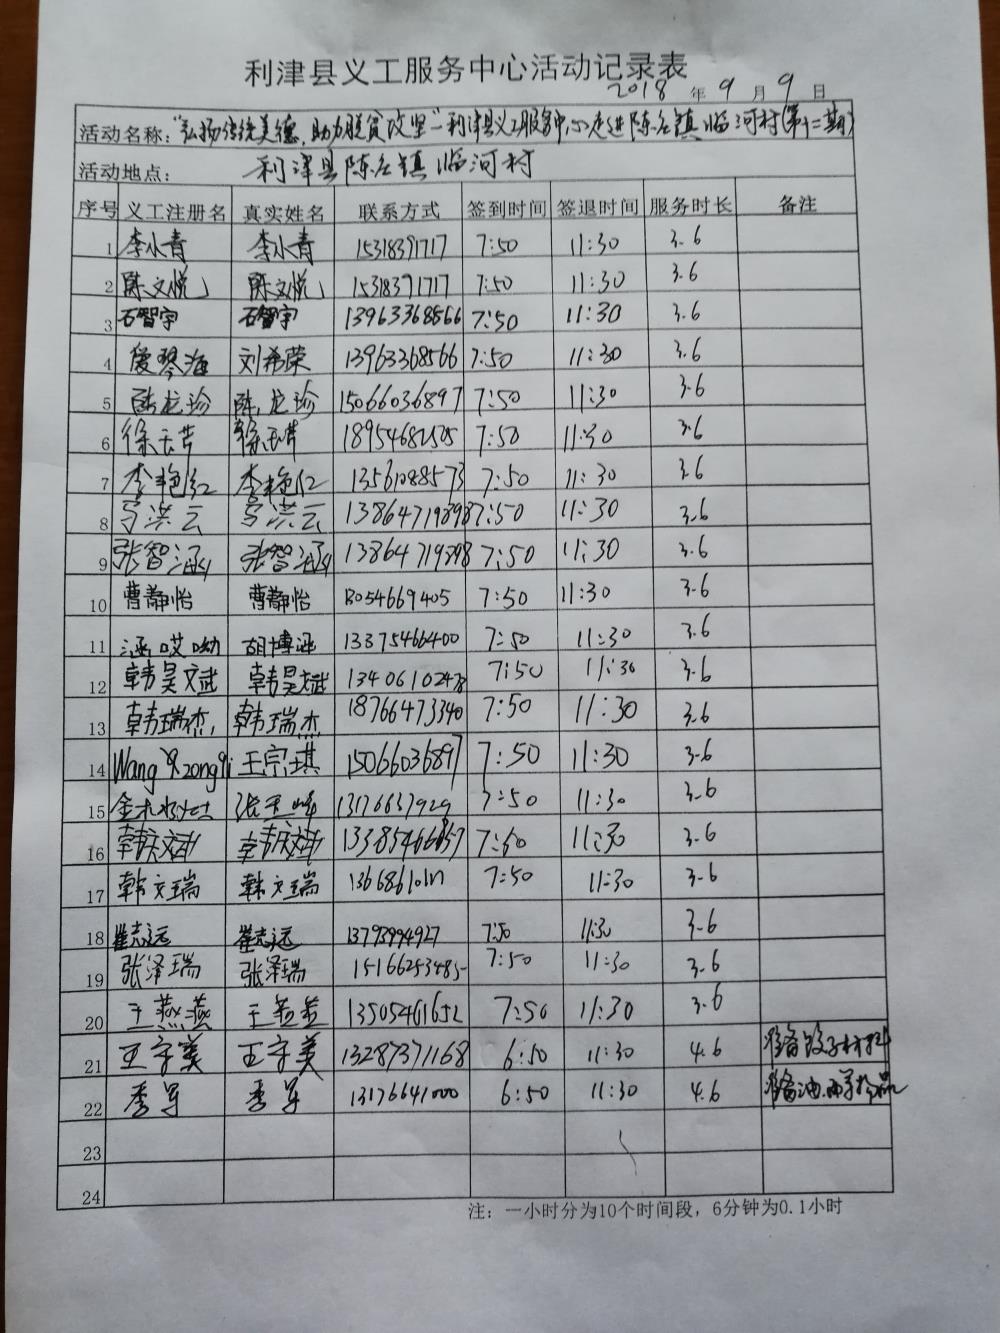 利津县义工服务中心活动记录表
2018 年 9 月 9 日
活动名称: "弘扬传统美德,助力脱贫攻坚"—利津县义工服务中心走进陈庄镇临河村(第十二期)
活动地点: 利津县陈庄镇临河村
序号 义工注册名 真实姓名 联系方式 签到时间 签退时间 服务时长 备注
1 李小青 李小青 15318391717 7:50 11:30 3.6
2 陈文悦 陈文悦 15318391717 7:50 11:30 3.6
3 石智宇 石智宇 13963368566 7:50 11:30 3.6
4 爱琴海 刘希荣 13963368566 7:50 11:30 3.6
5 陈龙珍 陈龙珍 15066036897 7:50 11:30 3.6
6 徐玉芹 徐玉芹 18954682505 7:50 11:30 3.6
7 李艳红 李艳红 13561088573 7:50 11:30 3.6
8 洪云 洪云 13864719898 7:50 11:30 3.6
9 张智涵 张智涵 13864719898 7:50 11:30 3.6
10 曹静怡 曹静怡 13054669405 7:50 11:30 3.6
11 涵哎呦 胡博涵 13375466400 7:50 11:30 3.6
12 韩昊斌 韩昊斌 13406102478 7:50 11:30 3.6
13 韩瑞杰 韩瑞杰 18766473340 7:50 11:30 3.6
14 Wang zongqi 王宗琪 15066036897 7:50 11:30 3.6
15 张玉峰 13176637929 7:50 11:30 3.6
16 13385466857 7:50 11:30 3.6
17 韩文瑞 韩文瑞 7:50 11:30 3.6
18 崔志远 崔志远 13793994927 7:50 11:30 3.6
19 张泽瑞 张泽瑞 15166253485 7:50 11:30 3.6
20 王燕燕 王燕燕 13505461652 7:50 11:30 3.6
21 王守美 王守美 13287371168 6:50 11:30 4.6 准备饺子材料
22 李军 李军 13176641000 6:50 11:30 4.6 准备油
23
24
注: 一小时分为10个时间段, 6分钟为0.1小时